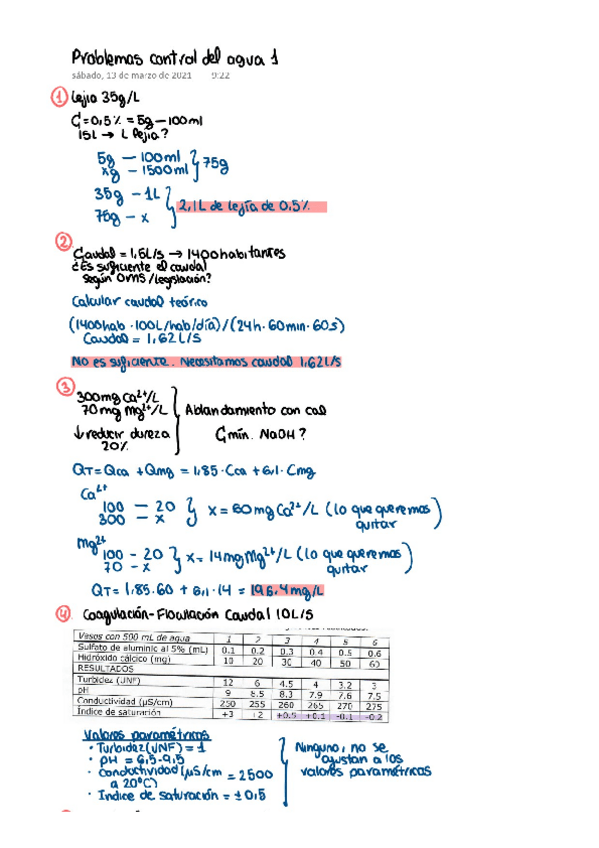 Problemas control del agua 1
sábado, 13 de marzo de 2021 9:22
1 Lejía 35g/L
C=0,5% = 5g — 100ml
15L → L lejía?
5g — 100ml
xg — 1500ml } 75g
35g — 1L
75g — x } 2,1L de lejía de 0.5%
2 Caudal = 1,6L/s → 1400 habitantes
¿Es suficiente el caudal
según OMS/legislación?
Calcular caudal teórico
(1400hab · 100L/hab/día)/(24h · 60min · 60s)
Caudal = 1,62 L/s
No es suficiente. Necesitamos caudal 1,62L/s
3 300mg Ca²⁺/L
70mg Mg²⁺/L
↓ reducir dureza
20%
Ablandamiento con cal
C mín. NaOH?
QT = QCa + QMg = 1,85 · CCa + 6,1 · CMg
Ca²⁺
100 — 20
300 — x } x = 60mg Ca²⁺/L (lo que queremos
quitar)
Mg²⁺
100 - 20
70 - x } x = 14mg Mg²⁺/L (lo que queremos
quitar)
QT = 1,85·60 + 6,1·14 = 196,4 mg/L
4 Coagulación-Floculación Caudal 10L/s
Vasos con 500 mL de agua 1 2 3 4 5 6
Sulfato de aluminic al 5% (mL) 0.1 0.2 0.3 0.4 0.5 0.6
Hidróxido cálcico (mg) 10 20 30 40 50 60
RESULTADOS
Turbidez (UNF) 12 6 4.5 4 3.2 3
pH 9 8.5 8.3 7.9 7.6 7.5
Conductividad (µS/cm) 250 255 260 265 270 275
Índice de saturación +3 +2 +0.5 +0.1 -0.1 -0.2
Valores paramétricos
· Turbidez (UNF) = 1
· pH = 6,5-9,5
· Conductividad (µS/cm = 2500
a 20ºC)
· Indice de saturación = ± 0,5
Ninguno, no se
ajustan a los
valores paramétricos